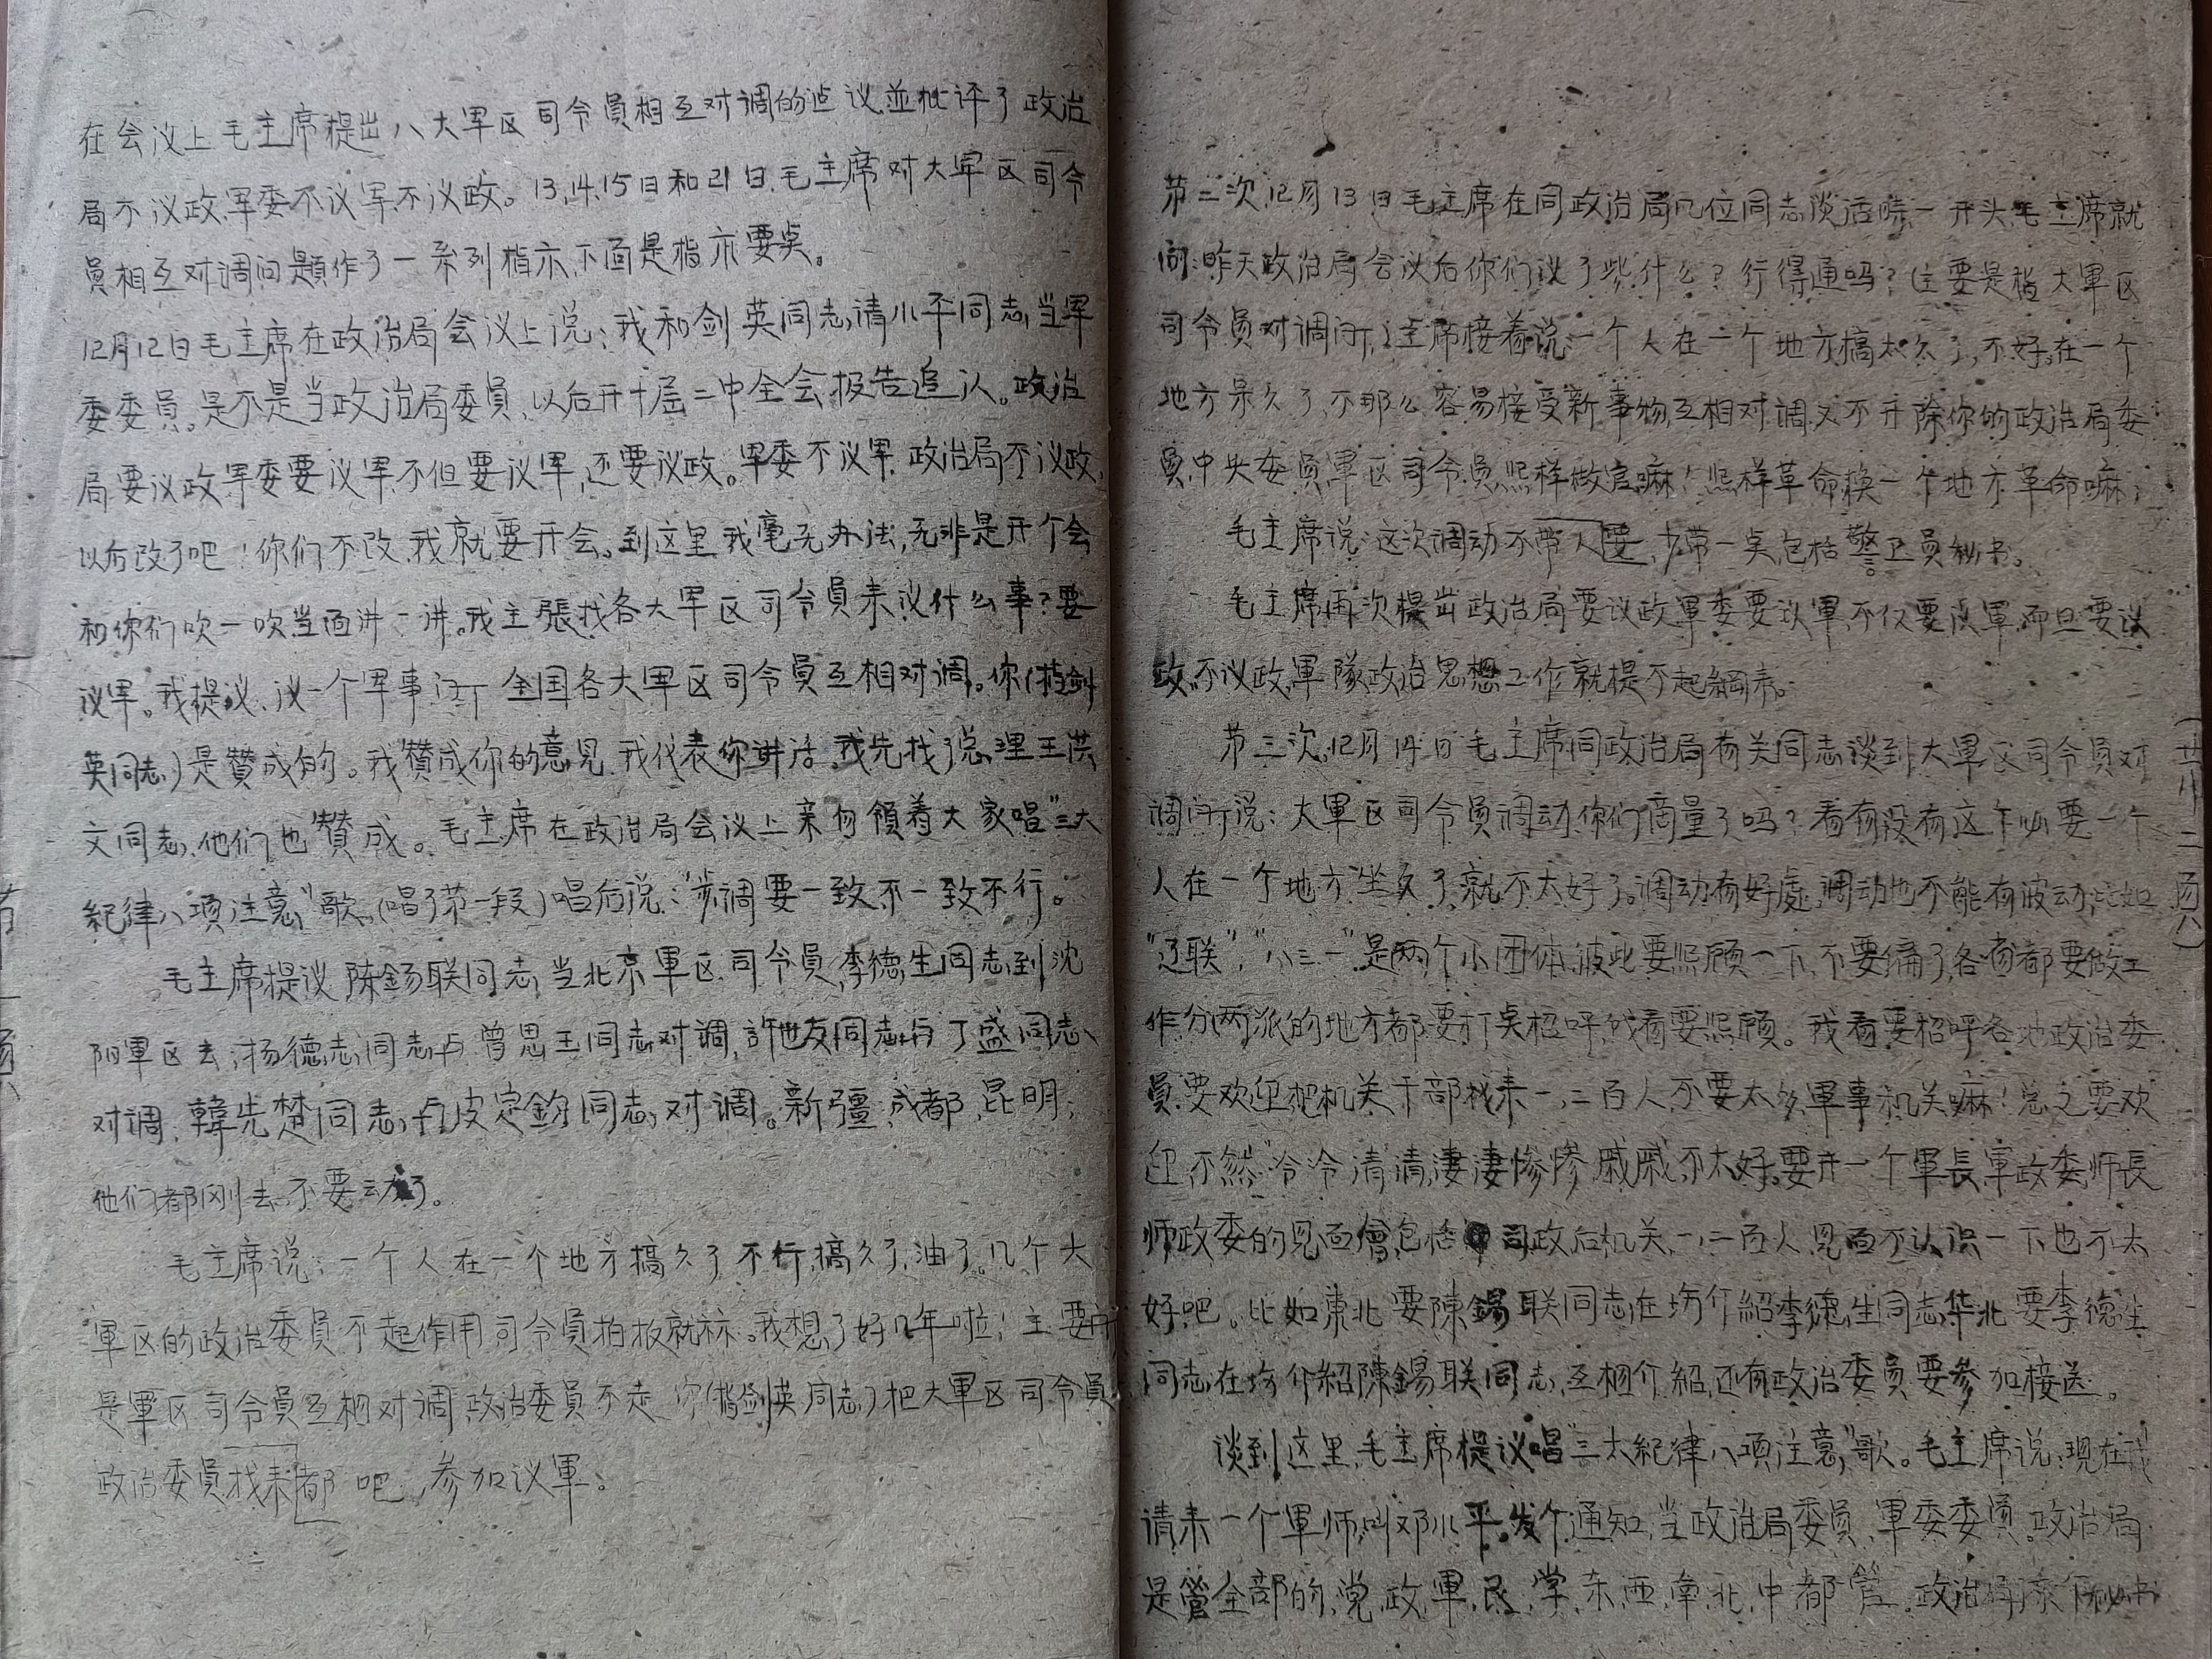 在会议上毛主席提出八大军区司令員相互对调的建议並批评了政治
局不议政,军委不议军,不议政。13,14,15日和21日,毛主席对大军区司令
員相互对调问題作了一系列指示,下面是指示要点。
12月12日毛主席在政治局会议上说:我和剑英同志,请小平同志,当军
委委員。是不是当政治局委員,以后开十届二中全会报告追认。政治
局要议政,军委要议军,不但要议军,还要议政。军委不议军,政治局不议政,
以后改了吧!你们不改,我就要开会。到这里我毫无办法,无非是开个会
和你们吹一吹,当面讲一讲。我主張找各大军区司令員来议什么事?要
议军。我提议,议一个军事问才全国各大军区司令員互相对调。你(指剑
英同志)是贊成的。我贊成你的意见,我代表你讲话,我先找了总理王洪
文同志,他们也贊成。毛主席在政治局会议上亲自領着大家唱"三大
紀律八项注意"歌。(唱了第一段)唱后说:"步调要一致不一致不行。
毛主席提议陈錫联同志当北京軍区司令員,李德生同志到沈
阳軍区去,杨德志同志与曾思玉同志对调,許世友同志与丁盛同志
对调,韓先楚同志与皮定鈞同志对调。新彊,成都,昆明,
他们都刚去,不要动了。
毛主席说:一个人在一个地方搞久了不行,搞久了,油了。几个大
軍区的政治委員不起作用司令員拍板就祘。我想了好几年啦!主要
是軍区司令員互相对调,政治委員不走,你(指剑英同志)把大軍区司令員
政治委員找来都吧,参加议軍。
第二次,12月13日毛主席在同政治局几位同志谈话时,一开头毛主席就
问:昨天政治局会议后你们议了些什么?行得通吗?(主要是指大軍区
司令員对调问才)主席接着说:一个人在一个地方搞太久了,不好。在一个
地方呆久了,不那么容易接受新事物,互相对调,又不开除你的政治局委
員,中央委員,軍区司令員,照样做官嘛!照样革命,换一个地方革命嘛;
毛主席说:这次调动不带人要,少带一点包括警卫員秘书。
毛主席再次提出政治局要议政,軍委要议軍,不仅要议軍,而且要议
政,不议政,軍隊政治思想工作就提不起綱来。
第三次,12月14日毛主席同政治局有关同志谈到大軍区司令員对
调问才说:大軍区司令員调动,你们商量了吗?看有没有这个必要一个
人在一个地方坐久了,就不太好了。调动有好處,调动也不能有波动,比如
"辽联","八三一"是两个小团体,彼此要照顾一下,不要偏了,各省都要做工
作分两派的地方都要打点招呼,我看要照顾。我看要招呼各地政治委
員,要欢迎把机关干部找来一,二百人,不要太多,軍事机关嘛!总之要欢
迎,不然"冷冷清清,凄凄惨惨,戚戚,不太好,要开一个軍長,軍政委,师長
师政委的见面會,包括司政后机关,一,二百人,见面不认识一下也不太
好吧。比如東北要陳錫联同志在場介紹李德生同志,华北要李德生
同志在場介紹陳錫联同志,互相介紹,还有政治委員要参加接送。
谈到这里,毛主席提议唱"三大紀律八项注意"歌。毛主席说:现在我
请来一个軍师,叫邓小平。发个通知,当政治局委員,軍委委員。政治局
是管全部的,党,政,軍,民,学,东,西,南,北,中都管,政治局添个秘书
(廿川二頁)